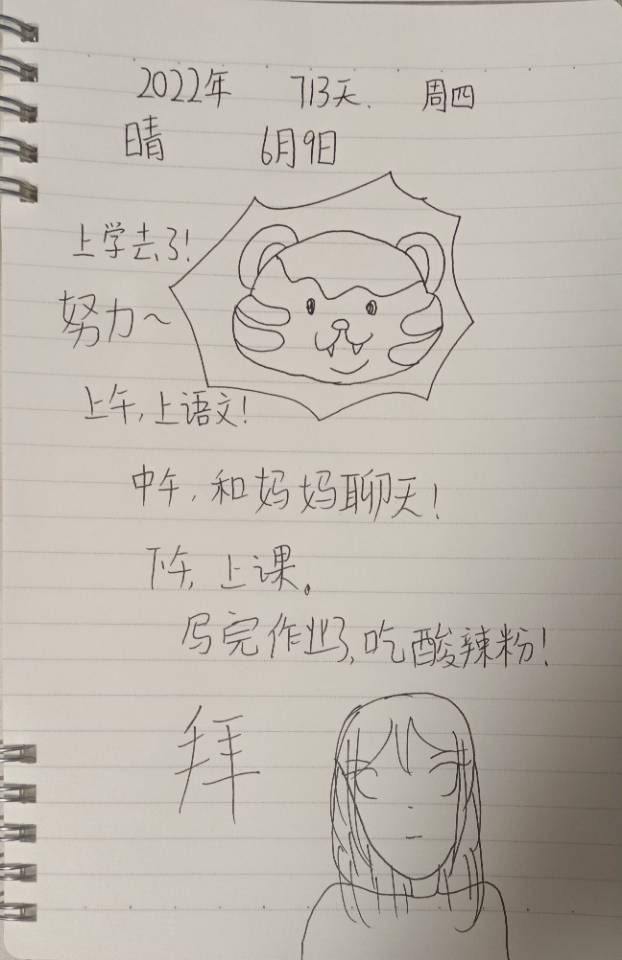 2022年 713天. 周四
晴 6月9日
上学去了!
努力~
上午,上语文!
中午,和妈妈聊天!
下午,上课。
写完作业了,吃酸辣粉!
拜